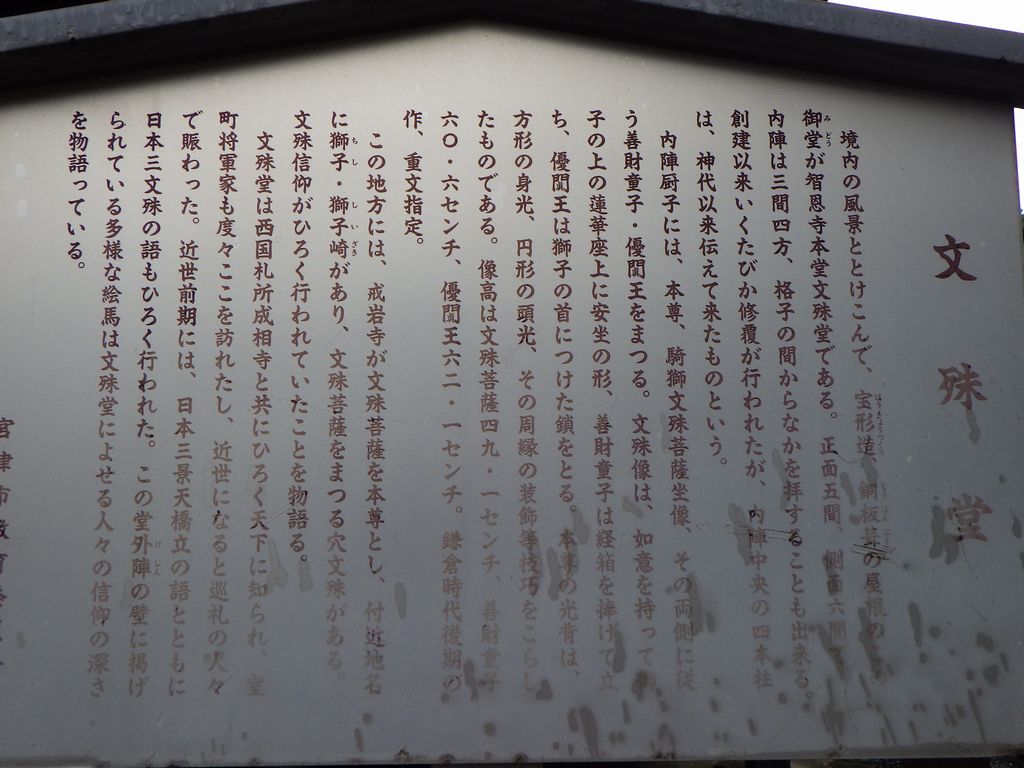 文殊堂
境内の風景ととけこんで、宝形造、銅板葺の屋根の
御堂が智恩寺本堂文殊堂である。正面五間、側面六間で
内陣は三間四方、格子の間からなかを拝することも出来る。
創建以来いくたびか修覆が行われたが、内陣中央の四本柱
は、神代以来伝えて来たものという。
内陣厨子には、本尊、騎獅文殊菩薩坐像、その両側に従
う善財童子・優闐王をまつる。文殊像は、如意を持って獅
子の上の蓮華座上に安坐の形、善財童子は経箱を捧げて立
ち、優闐王は獅子の首につけた鎖をとる。本尊の光背は、
方形の身光、円形の頭光、その周縁の装飾等技巧をこらし
たものである。像高は文殊菩薩四九・一センチ、善財童子
六〇・六センチ、優闐王六二・一センチ。鎌倉時代後期の
作、重文指定。
この地方には、戒岩寺が文殊菩薩を本尊とし、付近地名
に獅子・獅子崎があり、文殊菩薩をまつる穴文殊がある。
文殊信仰がひろく行われていたことを物語る。
文殊堂は西国札所成相寺と共にひろく天下に知られ、室
町将軍家も度々ここを訪れたし、近世になると巡礼の人々
で賑わった。近世前期には、日本三景天橋立の語とともに
日本三文殊の語もひろく行われた。この堂外陣の壁に掲げ
られている多様な絵馬は文殊堂によせる人々の信仰の深さ
を物語っている。
宮津市教育委